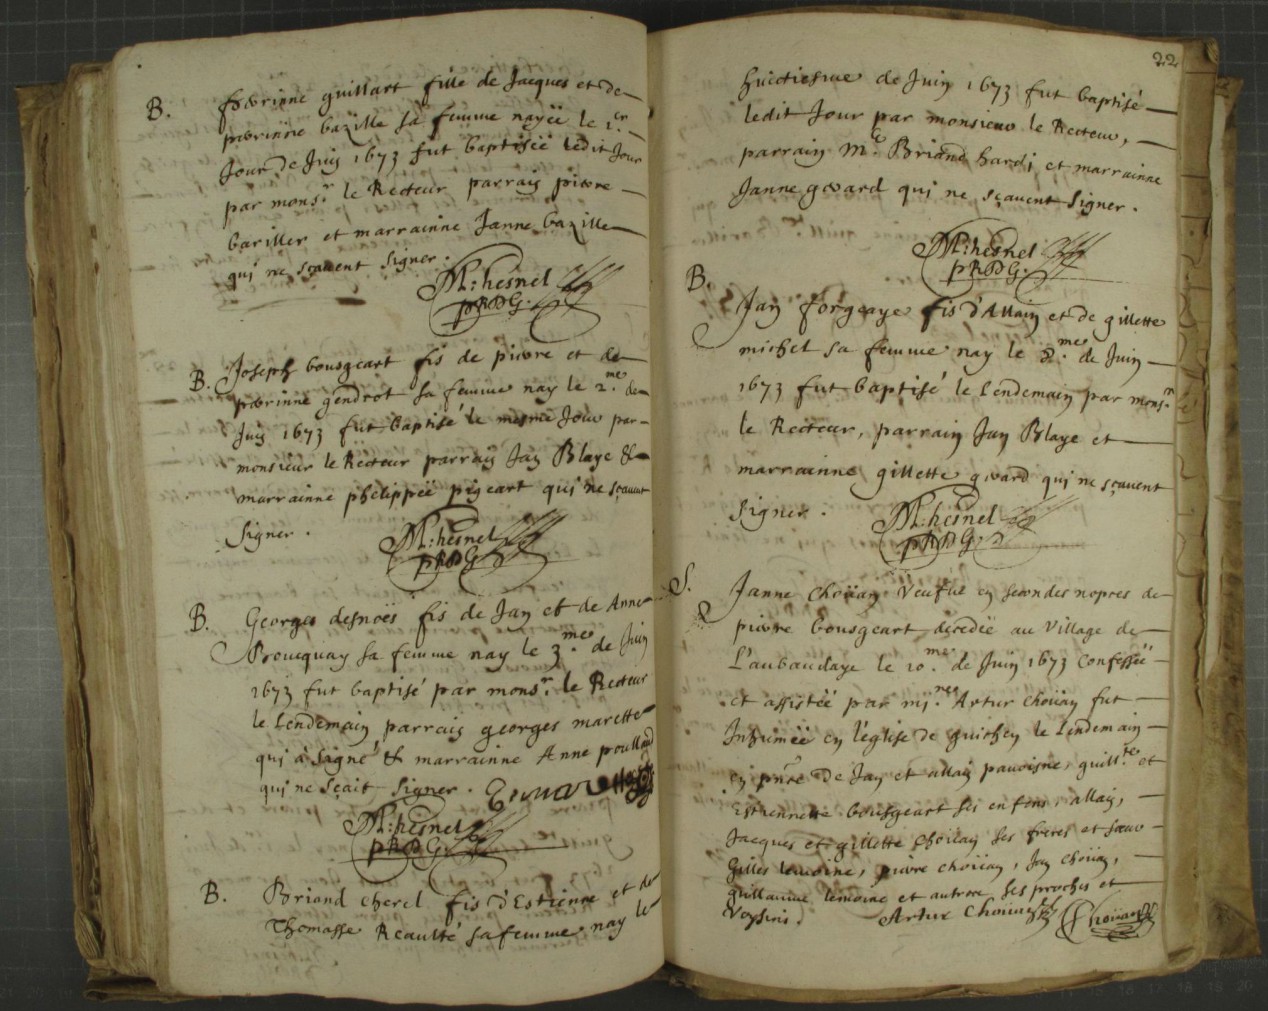 B. perrinne guillart fille de Jacques et de
perrinne bazille sa femme nayee le 1.er
Jour de Juin 1673 fut baptisée ledit Jour
par mons.r le Recteur parrain pierre
bariller et marrainne Janne bazille
qui ne sçauent signer.
M: hesnel
pRDG.
B. Joseph bousgeart fis de pierre et de
perrinne gendrot sa femme nay le 2.me de
Juin 1673 fut baptisé le mesme Jour par
monsieur le Recteur parrain Jan Blaye &
marrainne phelippée pigeart qui ne sçauent
signer.
M: hesnel
pRDG.
B. Georges desnoës fis de Jan et de Anne
Proucquay sa femme nay le 3.me de Juin
1673 fut baptisé par mons.r le Recteur
le Lendemain parrain georges marette
qui à signé & marrainne Anne poullard
qui ne sçait signer.
M: hesnel
pRDG.
B. Briand cherel fis d'Estienne et de
Thomasse Reaulté sa femme nay le
22
huictiesme de Juin 1673 fut baptisé
ledit Jour par monsieur le Recteur,
parrain M.e Briand hardi et marrainne
Janne gerard qui ne sçauent signer.
M: hesnel
pRDG.
B. Jan forgeaye fis d'Allain et de gillette
michel sa femme nay le 8.me de Juin
1673 fut baptisé le Lendemain par mons.r
le Recteur, parrain Jan Blaye et
marrainne gillette gerard qui ne sçauent
signer.
M: hesnel
pRDG.
S. Janne Choüan Veufue en secondes nopces de
pierre bousgeart decedée au Village de
L'aubaudaye le 10.me de Juin 1673 Confessée
et assistée par Artur choüan fut
Inhumée en l'église de guichen le Lendemain
en pnce de Jan et allain pauoisne, guill.me et
Estiennette bousgeart ses enfens, allain,
Jacques et gillette Choüan ses freres et soeur
Gilles lemoine, pierre choüan, Jan choüan,
guillaume lemoine et autres ses proches et
Voysins. Artur Choüan Choüan